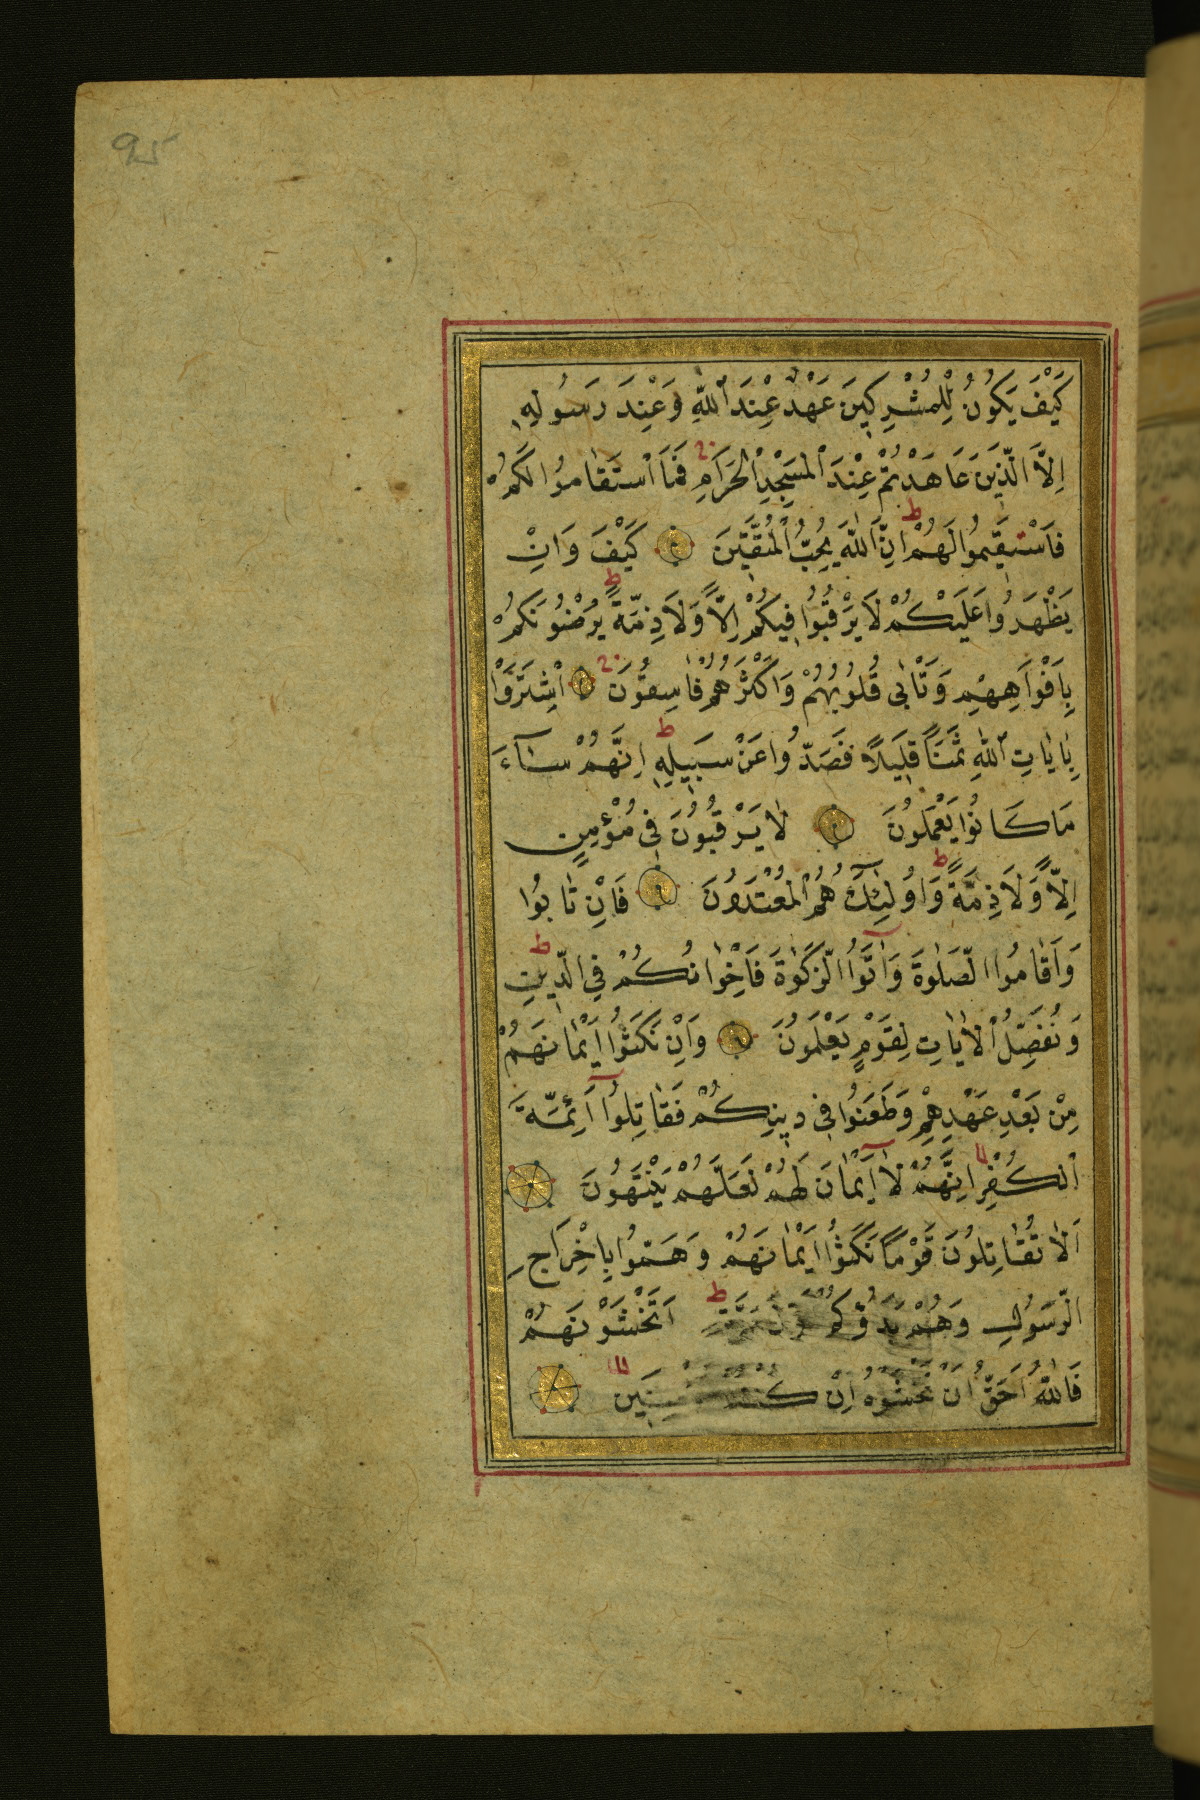 كَيْفَ يَكُونُ لِلْمُشْرِكِينَ عَهْدٌ عِنْدَ ٱللّٰهِ وَعِنْدَ رَسُولِهِ
اِلَّا الَّذِينَ عَاهَدْتُمْ عِنْدَ ٱلْمَسْجِدِ ٱلْحَرَامِ فَمَا ٱسْتَقَامُوا لَكُمْ
فَاسْتَقِيمُوا لَهُمْ اِنَّ ٱللّٰهَ يُحِبُّ ٱلْمُتَّقِينَ كَيْفَ وَاِنْ
يَظْهَرُوا عَلَيْكُمْ لَا يَرْقُبُوا فِيكُمْ اِلًّا وَلَا ذِمَّةً يُرْضُونَكُمْ
بِاَفْوَاهِهِمْ وَتَأْبٰى قُلُوبُهُمْ وَاَكْثَرُهُمْ فَاسِقُونَ اِشْتَرَوْا
بِاٰيَاتِ ٱللّٰهِ ثَمَنًا قَلِيلًا فَصَدُّوا عَنْ سَبِيلِهِ اِنَّهُمْ سَآءَ
مَا كَانُوا يَعْمَلُونَ لَا يَرْقُبُونَ فِى مُؤْمِنٍ
اِلًّا وَلَا ذِمَّةً وَاُولٰٓئِكَ هُمُ ٱلْمُعْتَدُونَ فَاِنْ تَابُوا
وَاَقَامُوا الصَّلٰوةَ وَاٰتَوُا الزَّكٰوةَ فَاِخْوَانُكُمْ فِى الدِّينِ
وَنُفَصِّلُ ٱلْاٰيَاتِ لِقَوْمٍ يَعْلَمُونَ وَاِنْ نَكَثُوا اَيْمَانَهُمْ
مِنْ بَعْدِ عَهْدِهِمْ وَطَعَنُوا فِى دِينِكُمْ فَقَاتِلُوا اَئِمَّةَ
ٱلْكُفْرِ اِنَّهُمْ لَا اَيْمَانَ لَهُمْ لَعَلَّهُمْ يَنْتَهُونَ
اَلَا تُقَاتِلُونَ قَوْمًا نَكَثُوا اَيْمَانَهُمْ وَهَمُّوا بِاِخْرَاجِ
الرَّسُولِ وَهُمْ بَدَؤُكُمْ اَوَّلَ مَرَّةٍ اَتَخْشَوْنَهُمْ
فَاللّٰهُ اَحَقُّ اَنْ تَخْشَوْهُ اِنْ كُنْتُمْ مُؤْمِنِينَ